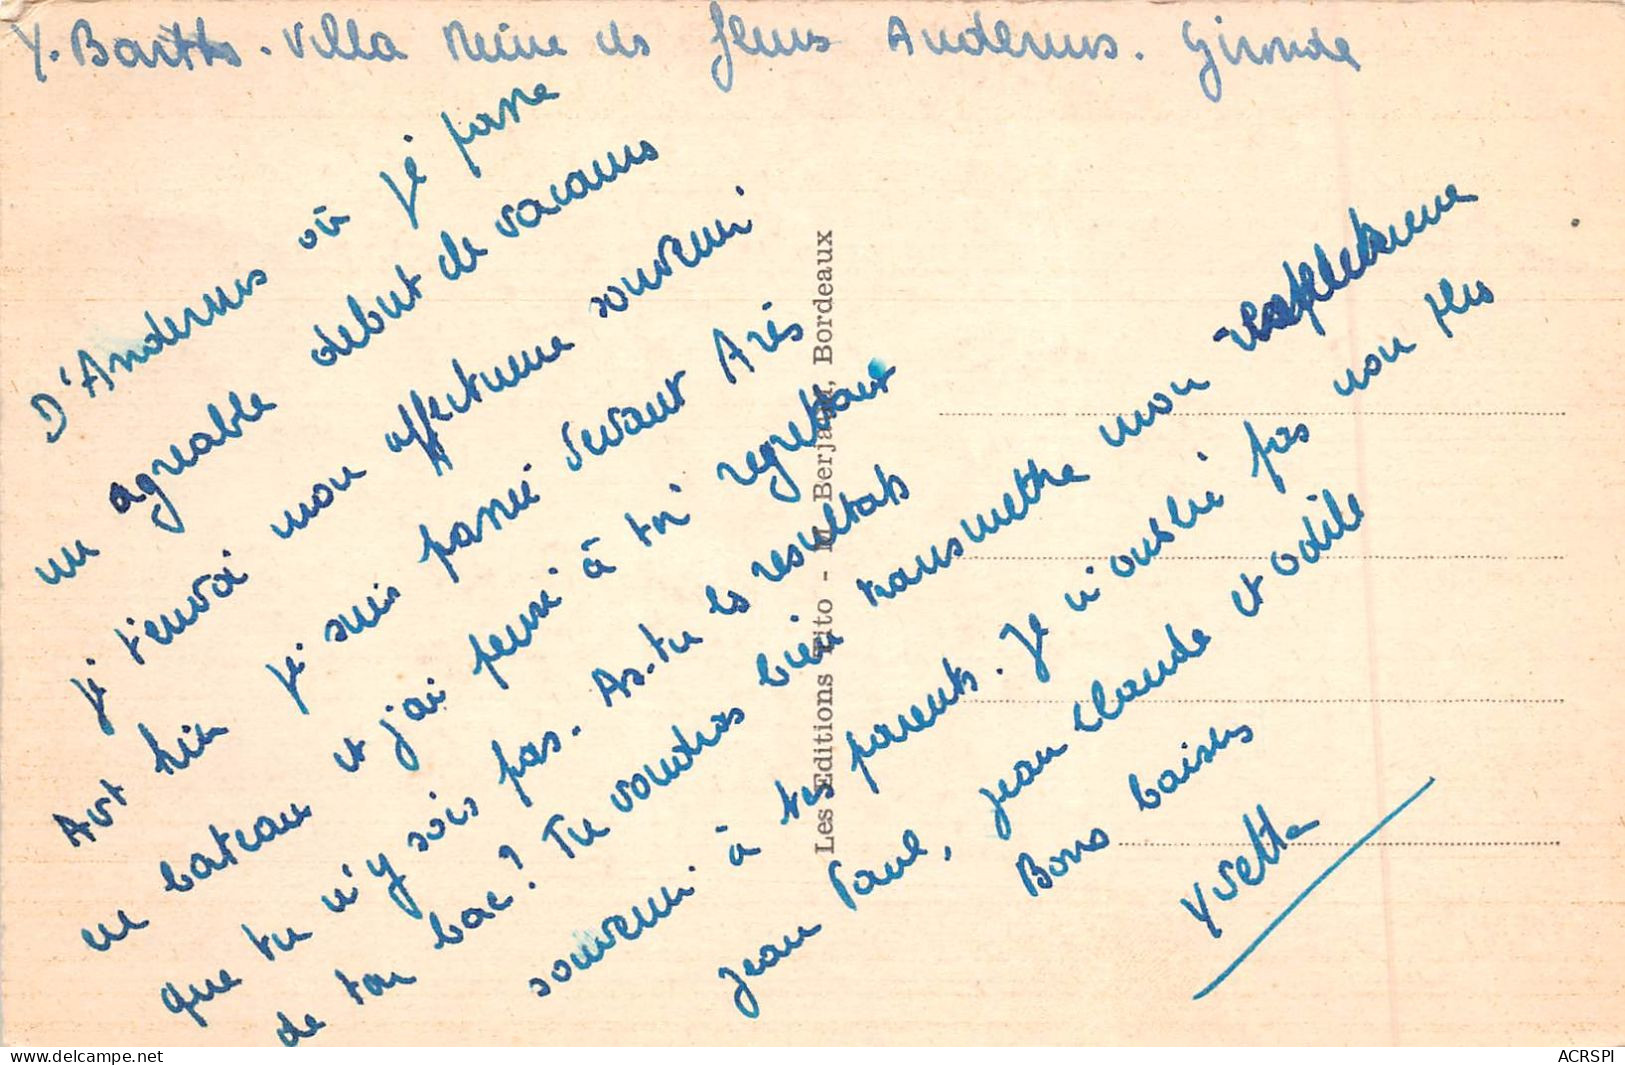 Y. Barths. Villa Reine des fleurs Andernos. Gironde
D'Andernos où je passe
un agreable debut de vacances
je t'envoi mon affectueux souvenir
Avt hier je suis passée devant Arès
en bateau et j'ai pensé à toi regrettant
que tu n'y sois pas. As-tu les resultats
de ton bac? Tu voudras bien transmettre mon
souvenir à tes parents. Je n'oublie pas non plus
Jean Paul, Jean Claude et Odile
Bons baisers
Yvette
Les Editions Tito - M. Berjaud, Bordeaux
www.delcampe.net
ACRSPI